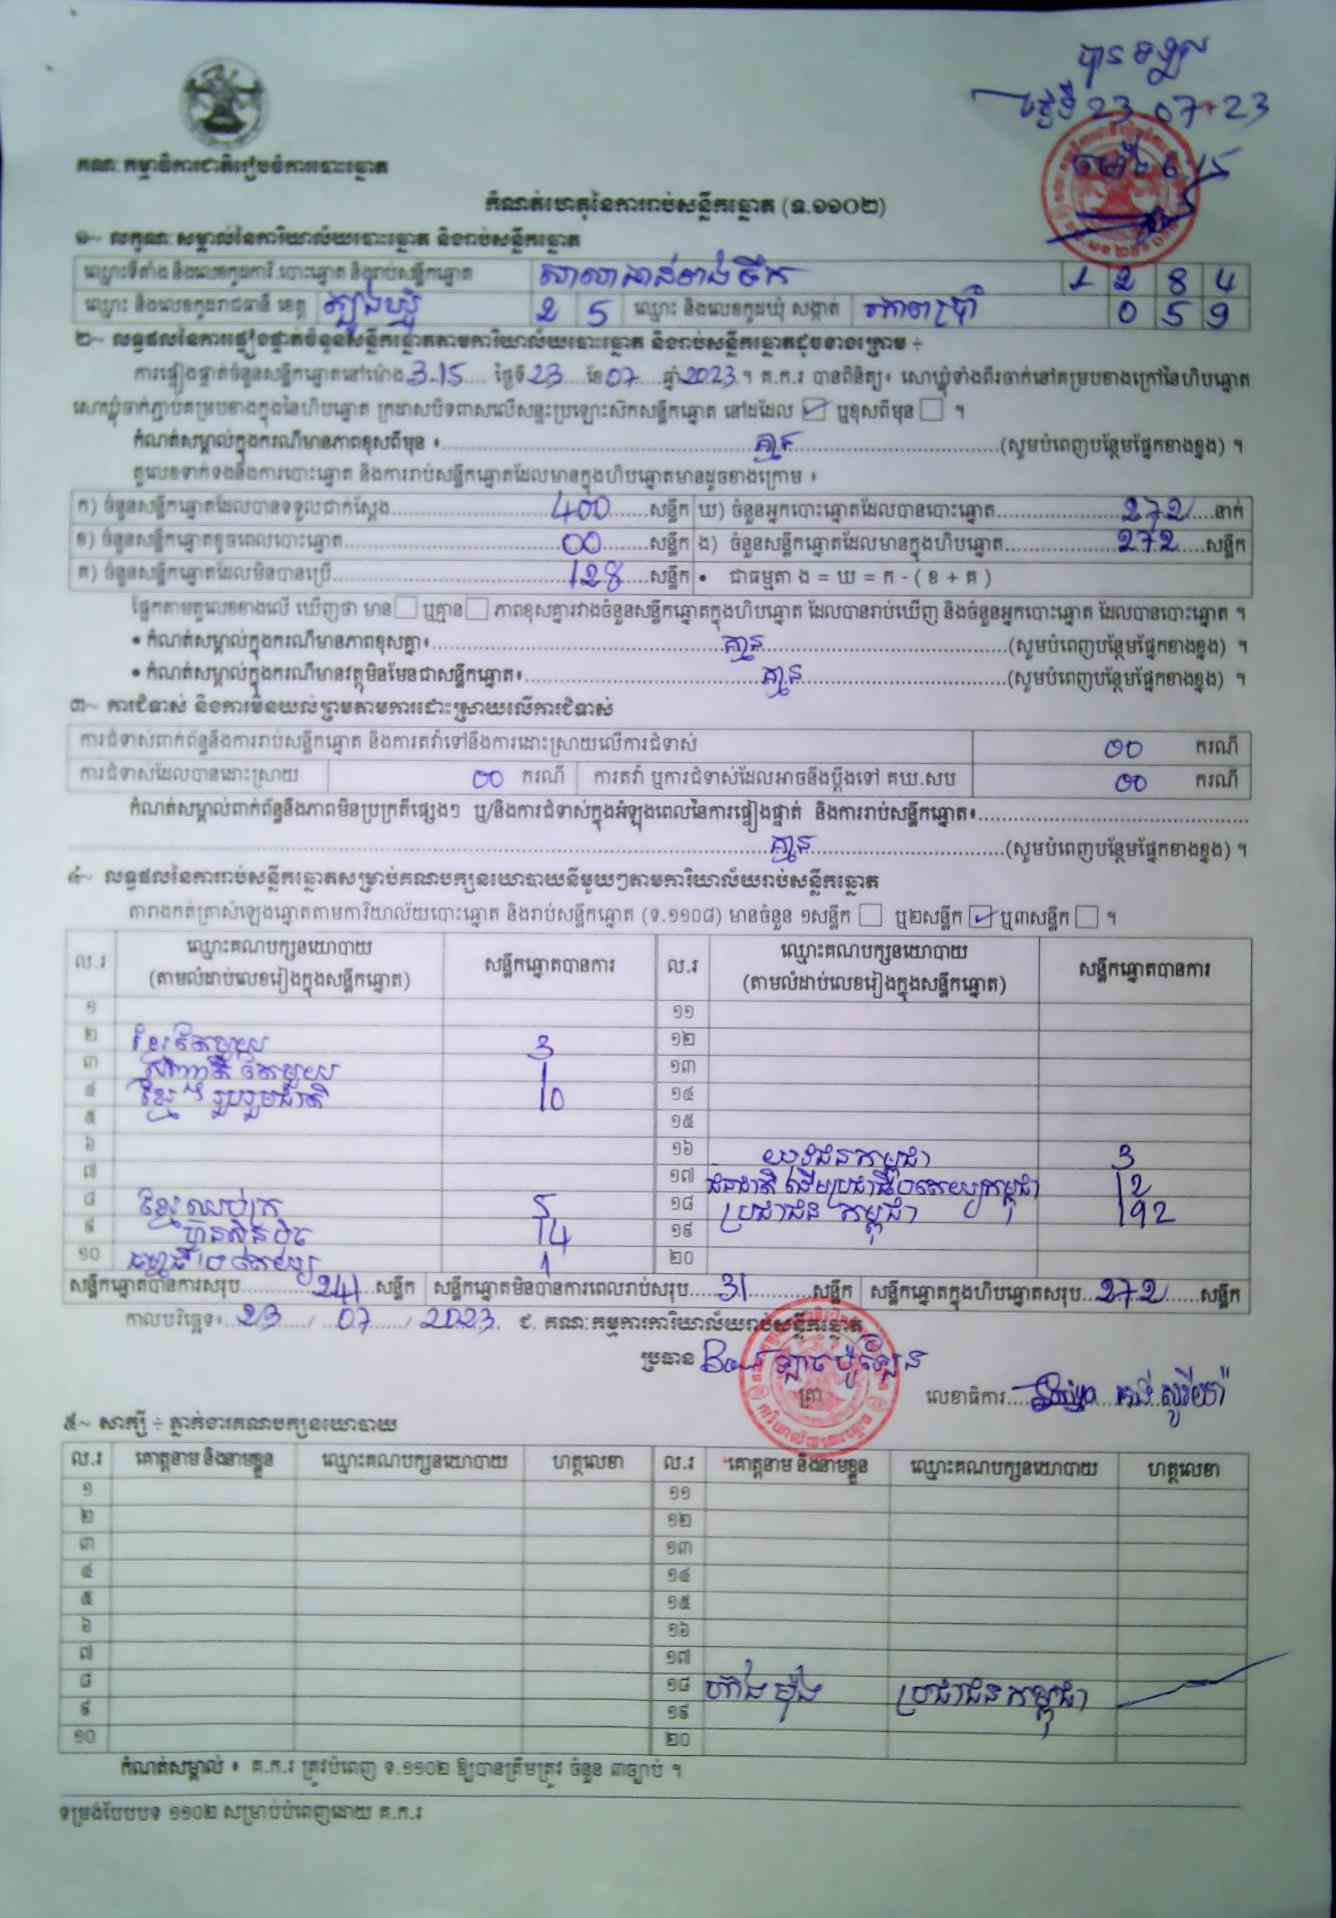 បានទទួល
ថ្ងៃទី 23 07 23
គណៈកម្មាធិការជាតិរៀបចំការបោះឆ្នោត
កំណត់ហេតុនៃការរាប់សន្លឹកឆ្នោត (ទ.១១០២)
១~ លក្ខណៈសម្គាល់នៃការិយាល័យបោះឆ្នោត និងរាប់សន្លឹកឆ្នោត
ឈ្មោះទីតាំង និងលេខកូដការិ.បោះឆ្នោត និងរាប់សន្លឹកឆ្នោត 1 2 8 4
ឈ្មោះ និងលេខកូដរាជធានី ខេត្ត ត្បូងឃ្មុំ 2 5 ឈ្មោះ និងលេខកូដឃុំ សង្កាត់ 0 5 9
២~ លទ្ធផលនៃការផ្ទៀងផ្ទាត់ចំនួនសន្លឹកឆ្នោតតាមការិយាល័យបោះឆ្នោត និងរាប់សន្លឹកឆ្នោតដូចខាងក្រោម ÷
ការផ្ទៀងផ្ទាត់ចំនួនសន្លឹកឆ្នោតនៅម៉ោង 3.15 ថ្ងៃទី 23 ខែ 07 ឆ្នាំ 2023 ។ គ.ក.រ បានពិនិត្យ៖ សោឃ្លុំទាំងពីរចាក់នៅគម្របខាងក្រៅនៃហិបឆ្នោត
សោឃ្លុំចាក់ភ្ជាប់គម្របខាងក្នុងនៃហិបឆ្នោត ក្រដាសបិទពាសលើសន្ទះប្រឡោះស៊កសន្លឹកឆ្នោត នៅដដែល ☑ ឬខុសពីមុន ☐ ។
កំណត់សម្គាល់ក្នុងករណីមានភាពខុសពីមុន ៖ គ្មាន (សូមបំពេញបន្ថែមផ្នែកខាងខ្នង) ។
តួលេខទាក់ទងនឹងការបោះឆ្នោត និងការរាប់សន្លឹកឆ្នោតដែលមានក្នុងហិបឆ្នោតមានដូចខាងក្រោម ៖
ក) ចំនួនសន្លឹកឆ្នោតដែលបានទទួលជាក់ស្តែង 400 សន្លឹក ឃ) ចំនួនអ្នកបោះឆ្នោតដែលបានបោះឆ្នោត 272 នាក់
ខ) ចំនួនសន្លឹកឆ្នោតខូចពេលបោះឆ្នោត 00 សន្លឹក ង) ចំនួនសន្លឹកឆ្នោតដែលមានក្នុងហិបឆ្នោត 272 សន្លឹក
គ) ចំនួនសន្លឹកឆ្នោតដែលមិនបានប្រើ 128 សន្លឹក • ជាធម្មតា ង = ឃ = ក - ( ខ + គ )
ផ្អែកតាមតួលេខខាងលើ ឃើញថា មាន ☐ ឬគ្មាន ☐ ភាពខុសគ្នារវាងចំនួនសន្លឹកឆ្នោតក្នុងហិបឆ្នោត ដែលបានរាប់ឃើញ និងចំនួនអ្នកបោះឆ្នោត ដែលបានបោះឆ្នោត ។
• កំណត់សម្គាល់ក្នុងករណីមានភាពខុសគ្នា៖ គ្មាន (សូមបំពេញបន្ថែមផ្នែកខាងខ្នង) ។
• កំណត់សម្គាល់ក្នុងករណីមានវត្ថុមិនមែនជាសន្លឹកឆ្នោត៖ គ្មាន (សូមបំពេញបន្ថែមផ្នែកខាងខ្នង) ។
៣~ ការជំទាស់ និងការមិនយល់ព្រមតាមការដោះស្រាយលើការជំទាស់
ការជំទាស់ពាក់ព័ន្ធនឹងការរាប់សន្លឹកឆ្នោត និងការតវ៉ាទៅនឹងការដោះស្រាយលើការជំទាស់ 00 ករណី
ការជំទាស់ដែលបានដោះស្រាយ 00 ករណី ការតវ៉ា ឬការជំទាស់ដែលអាចនឹងប្តឹងទៅ គឃ.សប 00 ករណី
កំណត់សម្គាល់ពាក់ព័ន្ធនឹងភាពមិនប្រក្រតីផ្សេងៗ ឬ/និងការជំទាស់ក្នុងអំឡុងពេលនៃការផ្ទៀងផ្ទាត់ និងការរាប់សន្លឹកឆ្នោត៖
គ្មាន (សូមបំពេញបន្ថែមផ្នែកខាងខ្នង) ។
៤~ លទ្ធផលនៃការរាប់សន្លឹកឆ្នោតសម្រាប់គណបក្សនយោបាយនីមួយៗតាមការិយាល័យរាប់សន្លឹកឆ្នោត
តារាងកត់ត្រាសំឡេងឆ្នោតតាមការិយាល័យបោះឆ្នោត និងរាប់សន្លឹកឆ្នោត (ទ.១១០៨) មានចំនួន ១សន្លឹក ☐ ឬ២សន្លឹក ☑ ឬ៣សន្លឹក ☐ ។
ល.រ ឈ្មោះគណបក្សនយោបាយ (តាមលំដាប់លេខរៀងក្នុងសន្លឹកឆ្នោត) សន្លឹកឆ្នោតបានការ ល.រ ឈ្មោះគណបក្សនយោបាយ (តាមលំដាប់លេខរៀងក្នុងសន្លឹកឆ្នោត) សន្លឹកឆ្នោតបានការ
១ ១១
២ ខ្មែរតែមួយ 3 ១២
៣ 1 ១៣
៤ ខ្មែររួបរួមជាតិ 10 ១៤
៥ ១៥
៦ ១៦ យុវជនកម្ពុជា 3
៧ ១៧ ជនជាតិដើមប្រជាធិបតេយ្យកម្ពុជា 12
៨ ខ្មែរឈប់ក្រ 5 ១៨ ប្រជាជនកម្ពុជា 192
៩ ហ៊្វុនស៊ិនប៉ិច 14 ១៩
១០ 1 ២០
សន្លឹកឆ្នោតបានការសរុប 241 សន្លឹក សន្លឹកឆ្នោតមិនបានការពេលរាប់សរុប 31 សន្លឹក សន្លឹកឆ្នោតក្នុងហិបឆ្នោតសរុប 272 សន្លឹក
កាលបរិច្ឆេទ៖ 23 / 07 / 2023. ៩. គណៈកម្មការការិយាល័យរាប់សន្លឹកឆ្នោត
ប្រធាន ត្រា លេខាធិការ
៥~ សាក្សី ÷ ភ្នាក់ងារគណបក្សនយោបាយ
ល.រ គោត្តនាម និងនាមខ្លួន ឈ្មោះគណបក្សនយោបាយ ហត្ថលេខា ល.រ គោត្តនាម និងនាមខ្លួន ឈ្មោះគណបក្សនយោបាយ ហត្ថលេខា
១ ១១
២ ១២
៣ ១៣
៤ ១៤
៥ ១៥
៦ ១៦
៧ ១៧
៨ ១៨ ប្រជាជនកម្ពុជា
៩ ១៩
១០ ២០
កំណត់សម្គាល់ ៖ គ.ក.រ ត្រូវបំពេញ ទ.១១០២ ឱ្យបានត្រឹមត្រូវ ចំនួន ៣ច្បាប់ ។
ទម្រង់បែបបទ ១១០២ សម្រាប់បំពេញដោយ គ.ក.រ